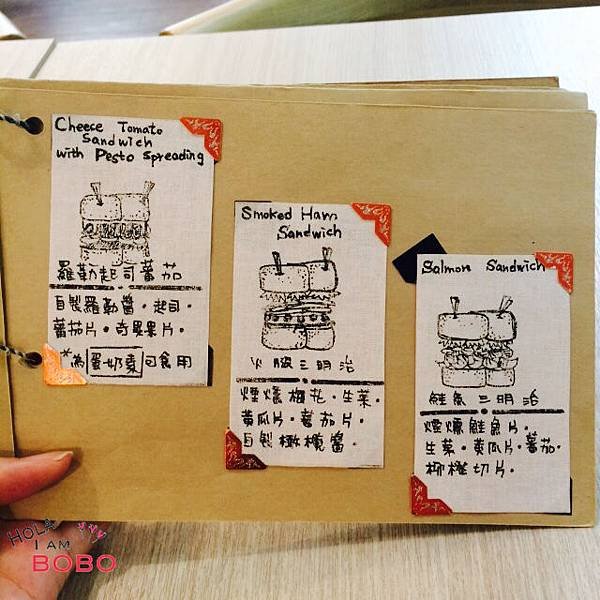 Cheece Tomato
Sandwich
with Pesto Spreading
羅勒起司蕃茄
自製羅勒醬。起司。
蕃茄片。奇異果片。
*為蛋奶素可食用
Smoked Ham
Sandwich
火腿三明治
煙燻梅花。生菜。
黃瓜片。蕃茄片。
自製橄欖醬。
Salmon Sandwich
鮭魚三明治
煙燻鮭魚片。
生菜。黃瓜片。蕃茄。
柳橙切片。
HOLA
I AM
BOBO